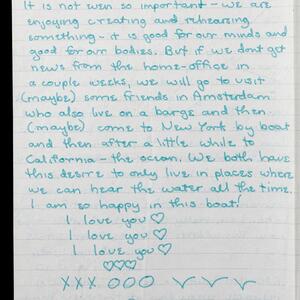 It is not even so important - we are
enjoying creating and rehearsing
something - it is good for our minds and
good for our bodies. But if we dont get
news from the home-office in
a couple weeks, we will go to visit
(maybe) some friends in Amsterdam
who also live on a barge and then
(maybe) come to New York by boat
and then after a little while to
California - the ocean. We both have
this desire to only live in places where
we can hear the water all the time.
I am so happy in this boat!
I love you ♡
I love you ♡
I love you ♡
♡♡♡
X X X O O O ✓ ✓ ✓